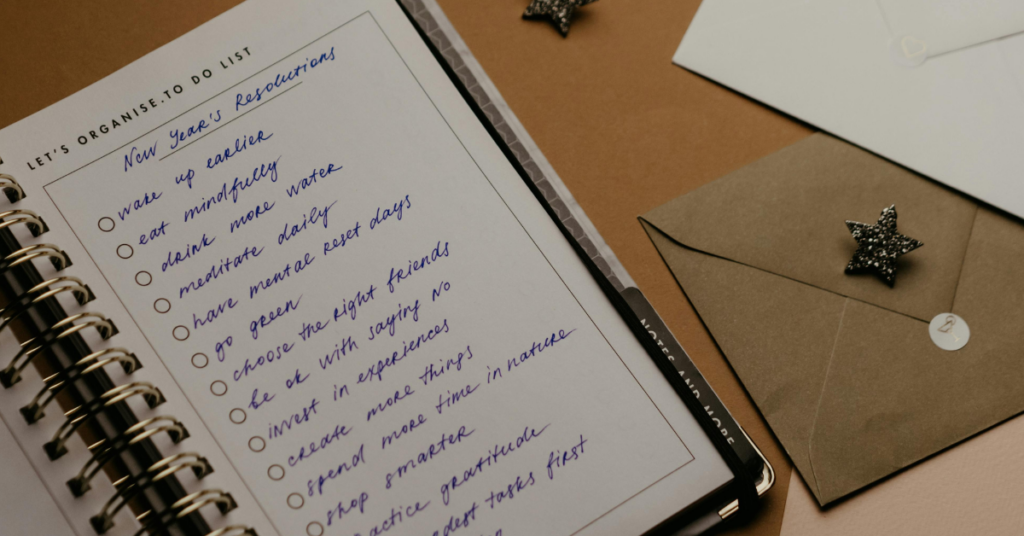 LET'S ORGANISE.TO DO LIST
New Year's Resolutions
wake up earlier
eat mindfully
drink more water
meditate daily
have mental reset days
go green
choose the right friends
be ok with saying No
invest in experiences
create more things
spend more time in nature
shop smarter
actice gratitude
dest tasks first
NOTES AND MORE